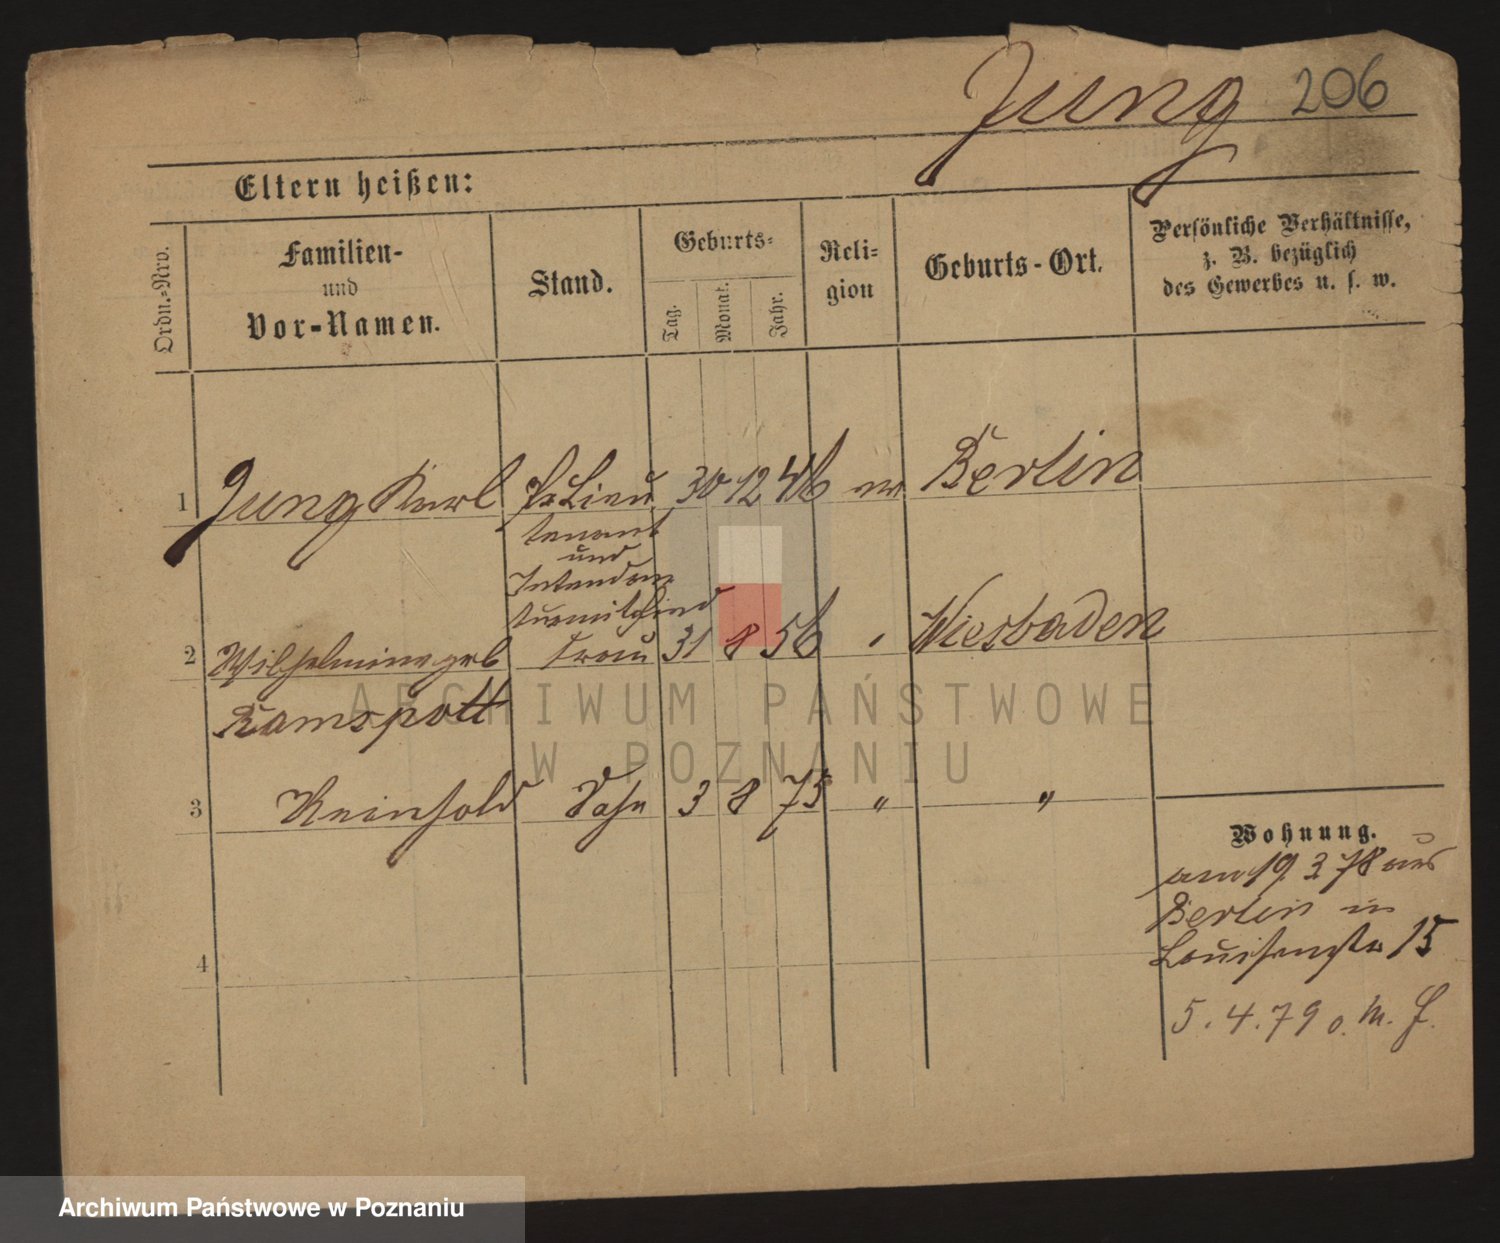 Jung 206
Eltern heißen:
Ordn.-Nro.
Familien-
und
Vor-Namen.
Stand.
Geburts-
Tag.
Monat.
Jahr.
Reli-
gion
Geburts-Ort.
Persönliche Verhältnisse,
z. B. bezüglich
des Gewerbes u. s. w.
1 Jung Karl Pr Lieu 30 12 46 ev Berlin
tenant
und
Intendan
turmitglied
2 Wilhelmine geb Frau 31 8 56 " Wiesbaden
Ramspott
3 Reinhold Sohn 3 8 75 " "
4
Wohnung.
am 19 3 78 aus
Berlin in
Louisenstr 15
5.4.79 o. M. f.
ARCHIWUM PAŃSTWOWE
W POZNANIU
Archiwum Państwowe w Poznaniu